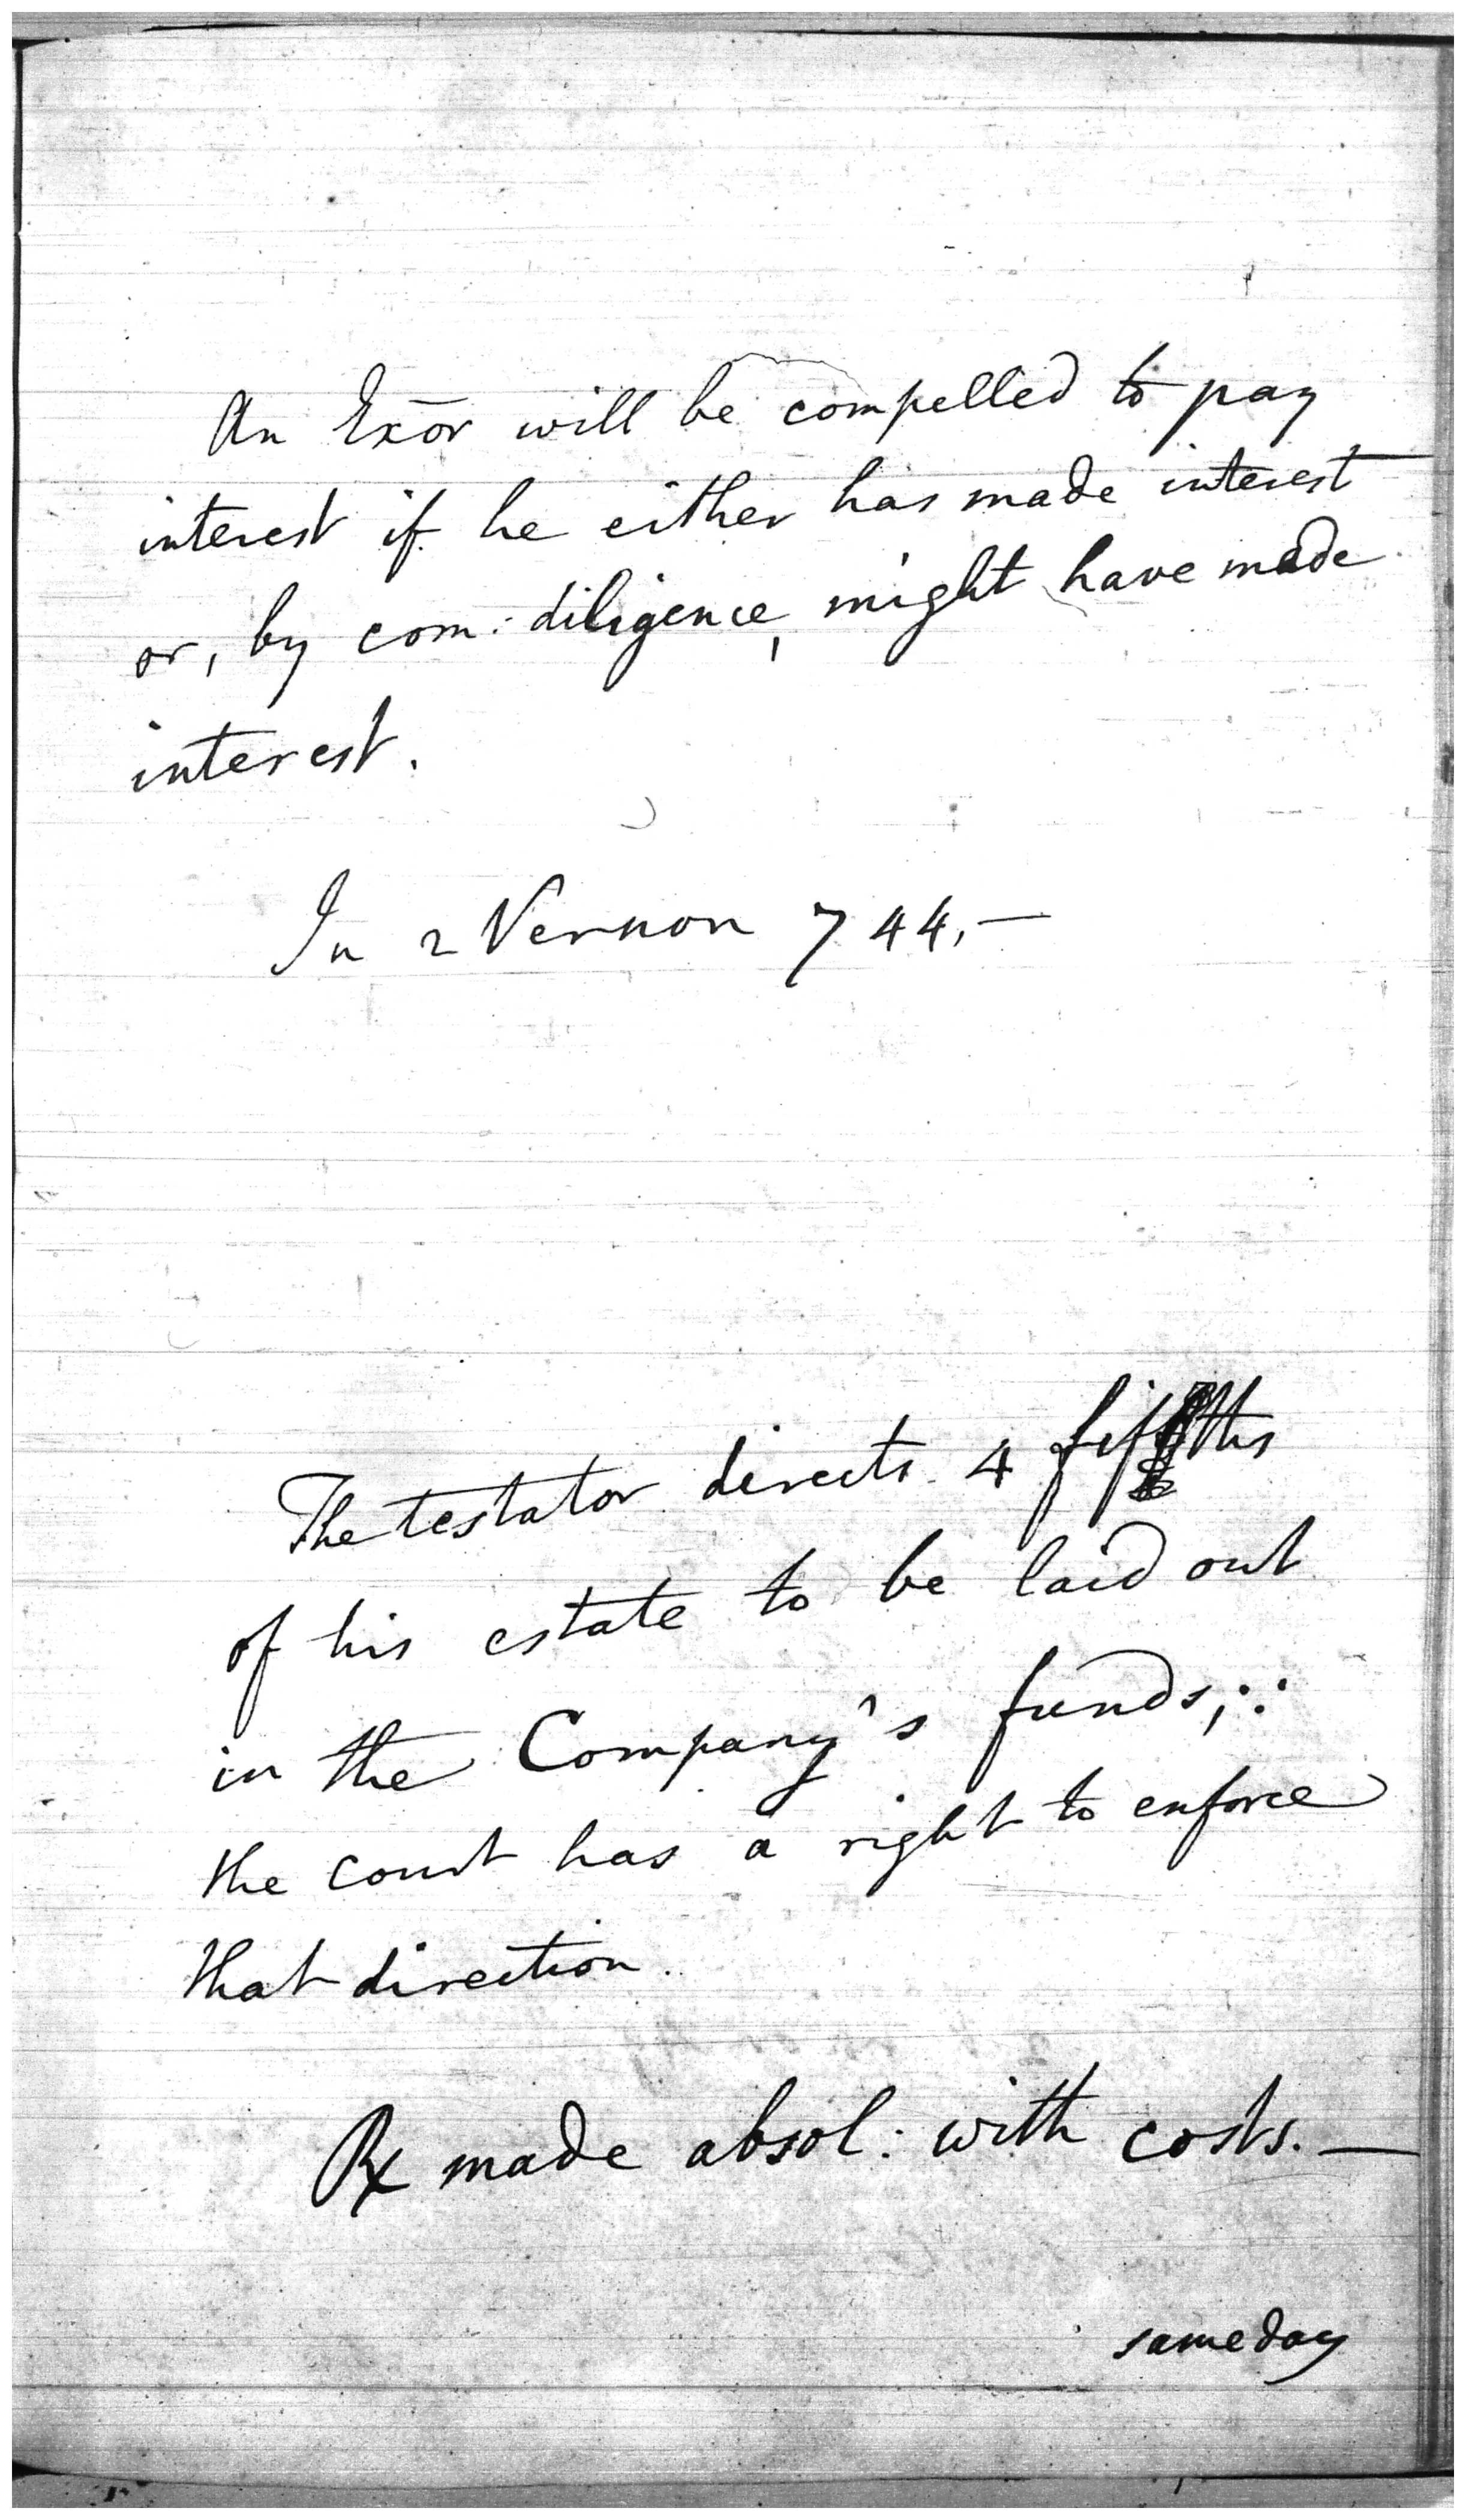 An Exōr will be compelled to pay
interest if he either has made interest
or, by com: diligence, might have made
interest.
In 2 Vernon 744,—
The testator directs 4 fifths
of his estate to be laid out
in the Company's funds; ∵
the court has a right to enforce
that direction.
Rx made absol: with costs.—
same day